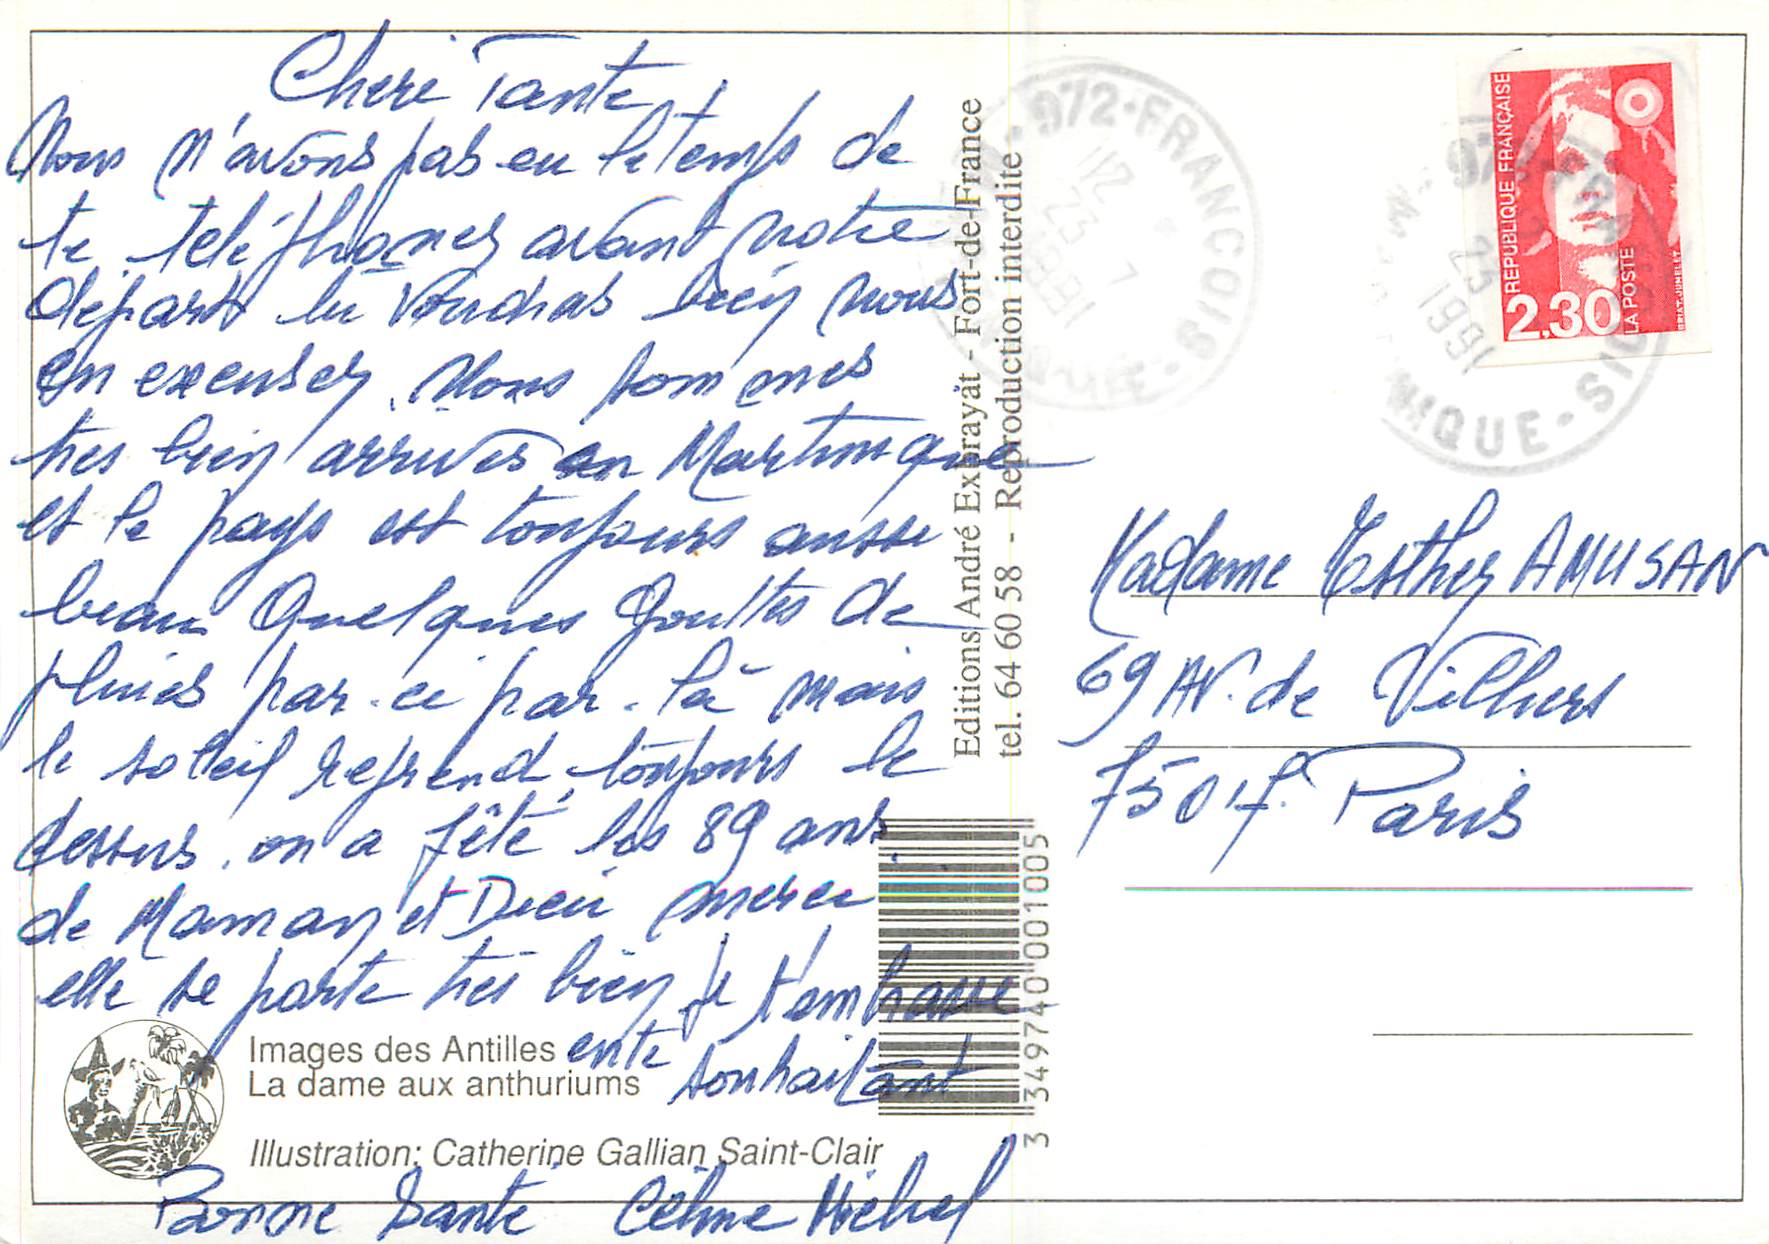 Cheré Tante
Nous n'avons pas eu le temps de
te téléphoner avant notre
départ tu voudras bien nous
en excuser. Nous sommes
tres bien arrivés en Martinique
et le pays est toujours aussi
beau Quelques Gouttes de
pluies par-ci par-là mais
le soleil reprend toujours le
dessus. on a fêté les 89 ans
de Maman et Dieu merci
elle se porte très bien je t'embrasse
en te
souhaitant
Bonne Santé Céline Michel
Images des Antilles
La dame aux anthuriums
Illustration: Catherine Gallian Saint-Clair
Editions André Exbrayat - Fort-de-France
tel. 64 60 58 - Reproduction interdite
3 349740 001005
972-FRANCOIS
23-7
1991
REPUBLIQUE FRANÇAISE
2,30
LA POSTE
BRIAT-JUMELET
1991
Madame Esther AMUSAN
69 AV. de Villiers
75017. Paris